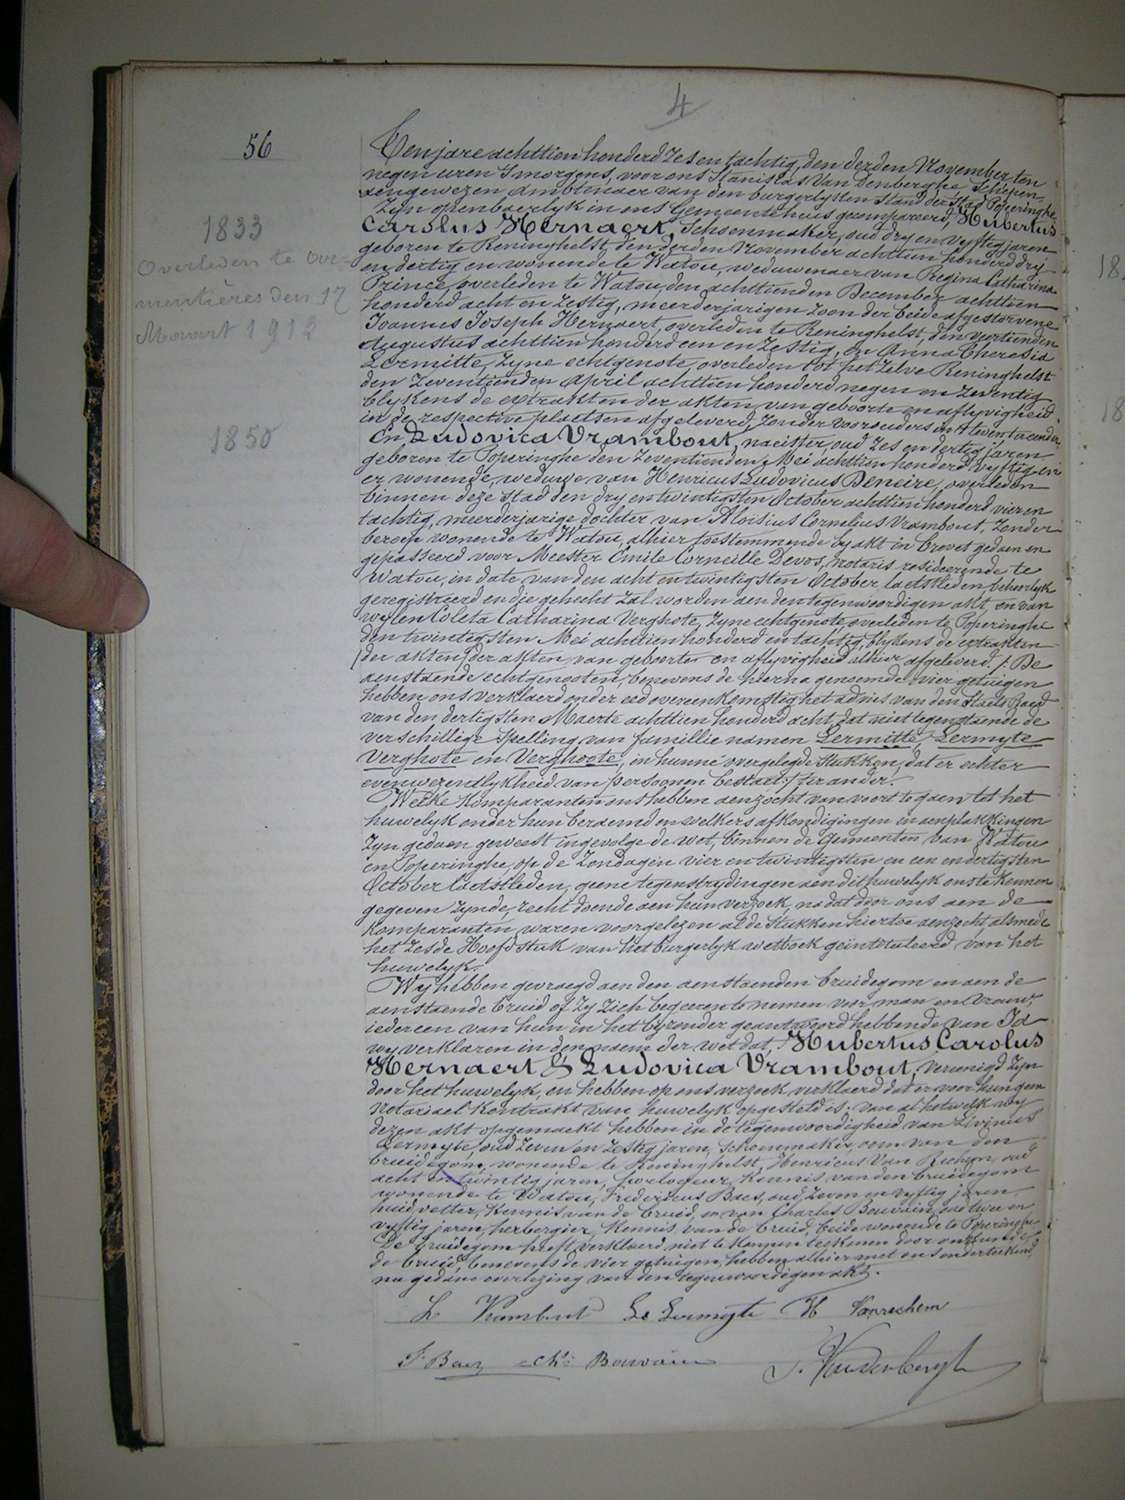 4
56
Ten jare achttien honderd zes en tachtig, den derden November ten
negen uren 's morgens, voor ons Stanislas Van Denberghe Schepen
aengewezen Ambtenaer van den burgerlyken Stand der Stad Poperinghe
zyn openbaerlyk in ons Gemeentehuis gecompareerd, Hubertus
Carolus Hernaert, Schoenmaker, oud dry en vyftig jaren
geboren te Reninghelst den derden November achttien honderd dry
en dertig en wonende te Watou, weduwenaer van Regina Catharina
Prince, overleden te Watou, den achttienden December achttien
honderd acht en zestig, meerderjarigen zoon der beide afgestorvene
Joannes Joseph Hernaert, overleden te Reninghelst, den veertienden
Augustus achttien honderd een en zestig, en Anna Theresia
Lermitte, zyne echtgenote, overleden tot het zelve Reninghelst
den zeventienden April achttien honderd negen en zeventig
blykens de extrakten der akten van geboorte en aflyvigheid
in de respective plaetsen afgeleverd, zonder voorouders in
En Ludovica Vrambout, naeister, oud zes en dertig jaren
geboren te Poperinghe den zeventienden Mei achttien honderd vyftig en
er wonende, weduwe van Henricus Ludovicus Deneire, overleden
binnen deze stad den dry en twintigsten October achttien honderd vier en
tachtig, meerderjarige dochter van Aloisius Cornelius Vrambout zonder
beroep wonende te Watou, alhier toestemmende by akt in brevet gedaen en
gepasseerd voor Meester Emile Corneille Devos, notaris resideerende te
Watou, in date van den acht en twintigsten October laetstleden behoorlyk
geregistreerd en die gehecht zal worden aen den tegenwoordigen akt, en van
wylen Coleta Catharina Verghote, zyne echtgenote overleden te Poperinghe
den twintigsten Mei achttien honderd en tachtig, blykens de extrakten
der akten der akten van geboorte en aflyvigheid alhier afgeleverd. De
aenstaende echtgenooten, benevens de hierna genoemde vier getuigen
hebben ons verklaerd onder eed overeenkomstig het advies van den Staets Raed
van den dertigsten Maerte achttien honderd acht, dat niet tegenstaende de
verschillige spelling van famillie namen Lermitte, Lermyte
Verghote en Verghoote, in hunne overgelegde stukken, dat er echter
evenwezendlykheid van persoonen bestaet
Welke komparanten ons hebben aenzocht van voort te gaen tot het
huwelyk onder hun beraemd en welkers afkondigingen in aenplakkingen
zyn gedaen geweest ingevolge de wet, binnen de Gemeenten van Watou
en Poperinghe, op de Zondagen vier en twintigsten en een en dertigsten
October laetstleden, geene tegenstrydingen aen dit huwelyk ons te kennen
gegeven zynde, recht doende aen hun verzoek, na dat door ons aen de
komparanten waren voorgelezen al de stukken hiertoe aenzocht alsmede
het zesde Hoofdstuk van het burgerlyk wetboek geintituleerd van het
huwelyk.
Wy hebben gevraegd aen den aenstaenden bruidegom en aen de
aenstaende bruid of zy zich begeeren te nemen voor man en vrouw,
iedereen van hun in het byzonder geantwoord hebbende van Ja
wy verklaren in den naem der wet dat, Hubertus Carolus
Hernaert & Ludovica Vrambout, vereenigd zyn
door het huwelyk, en hebben op ons verzoek, verklaerd dat er voor hun geen
notariael kontrakt van huwelyk opgesteld is; van al hetwelk wy
dezen akt opgemaekt hebben in de tegenwoordigheid van Livinus
Lermyte, oud zeven en zestig jaren, schoenmaker, oom van den
bruidegom, wonende te Reninghelst, Henricus Van Rechem, oud
acht en twintig jaren, horlogeur, kennis van den bruidegom
wonende te Watou, Fredericus Baes, oud zeven en vyftig jaren
huidvetter, kennis van de bruid, en van Charles Bouvain, oud twee en
vyftig jaren, herbergier, kennis van de bruid, beide wonende te Poperinghe
De bruidegom heeft verklaerd niet te konnen teekenen door onkunde
de bruid, benevens de vier getuigen, hebben alhier met ons onderteekend
na gedane overlezing van den tegenwoordigen akt.
L Vrambout Le Lermyte H Vanrechem
F. Baes Ch. Bouvain S. Vandenberghe
1833
Overleden te Ar-
mentières den 17
Maart 1913
1850